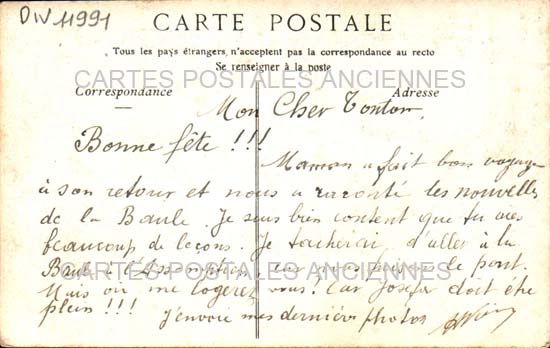 DIV 11991
CARTE POSTALE
Tous les pays étrangers n'acceptent pas la correspondance au recto
Se renseigner à la poste
CARTES POSTALES ANCIENNES
Correspondance
Adresse
Mon Cher Tonton,
Bonne fête !!!
Maman a fait bon voyage
à son retour et nous a raconté les nouvelles
de la Baule. Je suis bien content que tu aies
beaucoup de leçons. Je tacherai d'aller à la
Baule à l'Assomption car nous de pont.
CARTES POSTALES ANCIENNES
Mais où me logerez vous? Car Josefa doit être
plein !!!
J'envoie mes dernières photos